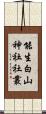 能生白山
神社社叢